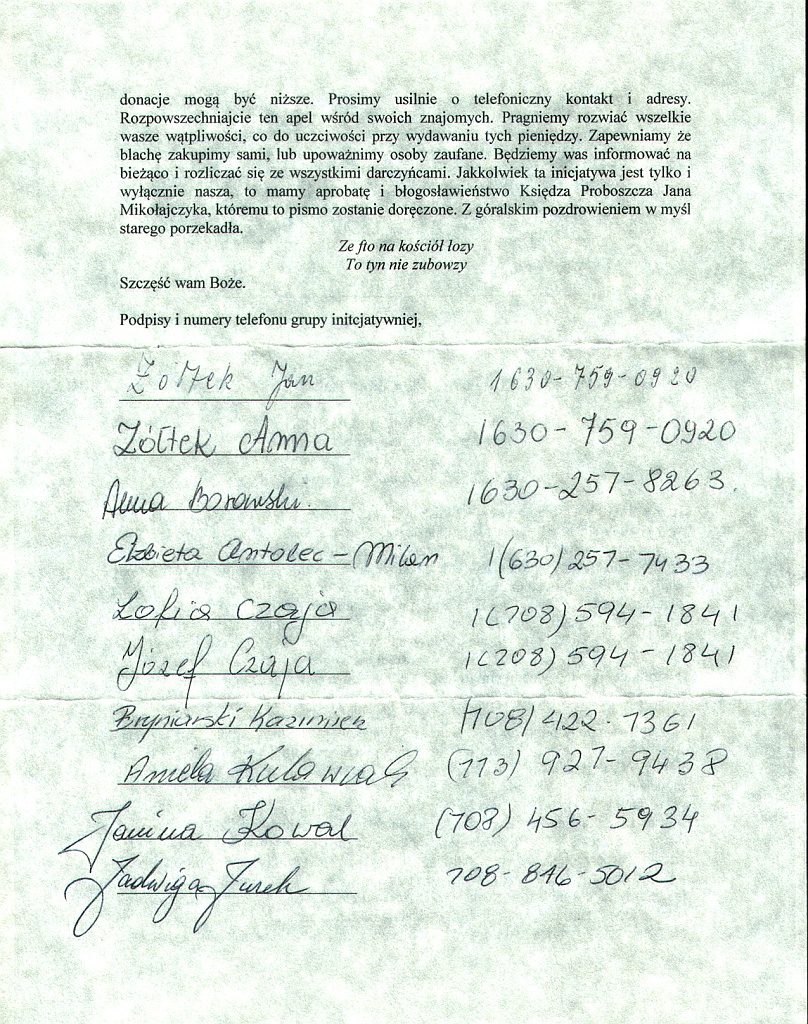 donacje mogą być niższe. Prosimy usilnie o telefoniczny kontakt i adresy.
Rozpowszechniajcie ten apel wśród swoich znajomych. Pragniemy rozwiać wszelkie
wasze wątpliwości, co do uczciwości przy wydawaniu tych pieniędzy. Zapewniamy że
blachę zakupimy sami, lub upoważnimy osoby zaufane. Będziemy was informować na
bieżąco i rozliczać się ze wszystkimi darczyńcami. Jakkolwiek ta inicjatywa jest tylko i
wyłącznie nasza, to mamy aprobatę i błogosławieństwo Księdza Proboszcza Jana
Mikołajczyka, któremu to pismo zostanie doręczone. Z góralskim pozdrowieniem w myśl
starego porzekadła.
Ze fto na kościół łozy
To tyn nie zubowzy
Szczęść wam Boże.
Podpisy i numery telefonu grupy initcjatywniej,
Żółtek Jan 1630-759-0920
Żółtek Anna 1630-759-0920
Anna Borowski. 1630-257-8263.
Elżbieta Antolec - Milan 1(630)257-7433
Zofia Czaja 1(708)594-1841
Józef Czaja 1(708)594-1841
Bryniarski Kazimierz (708)422-7361
Aniela Kulawiak (773) 927-9438
Janina Kowal (708) 456-5934
Jadwiga Jurek 708-846-5012